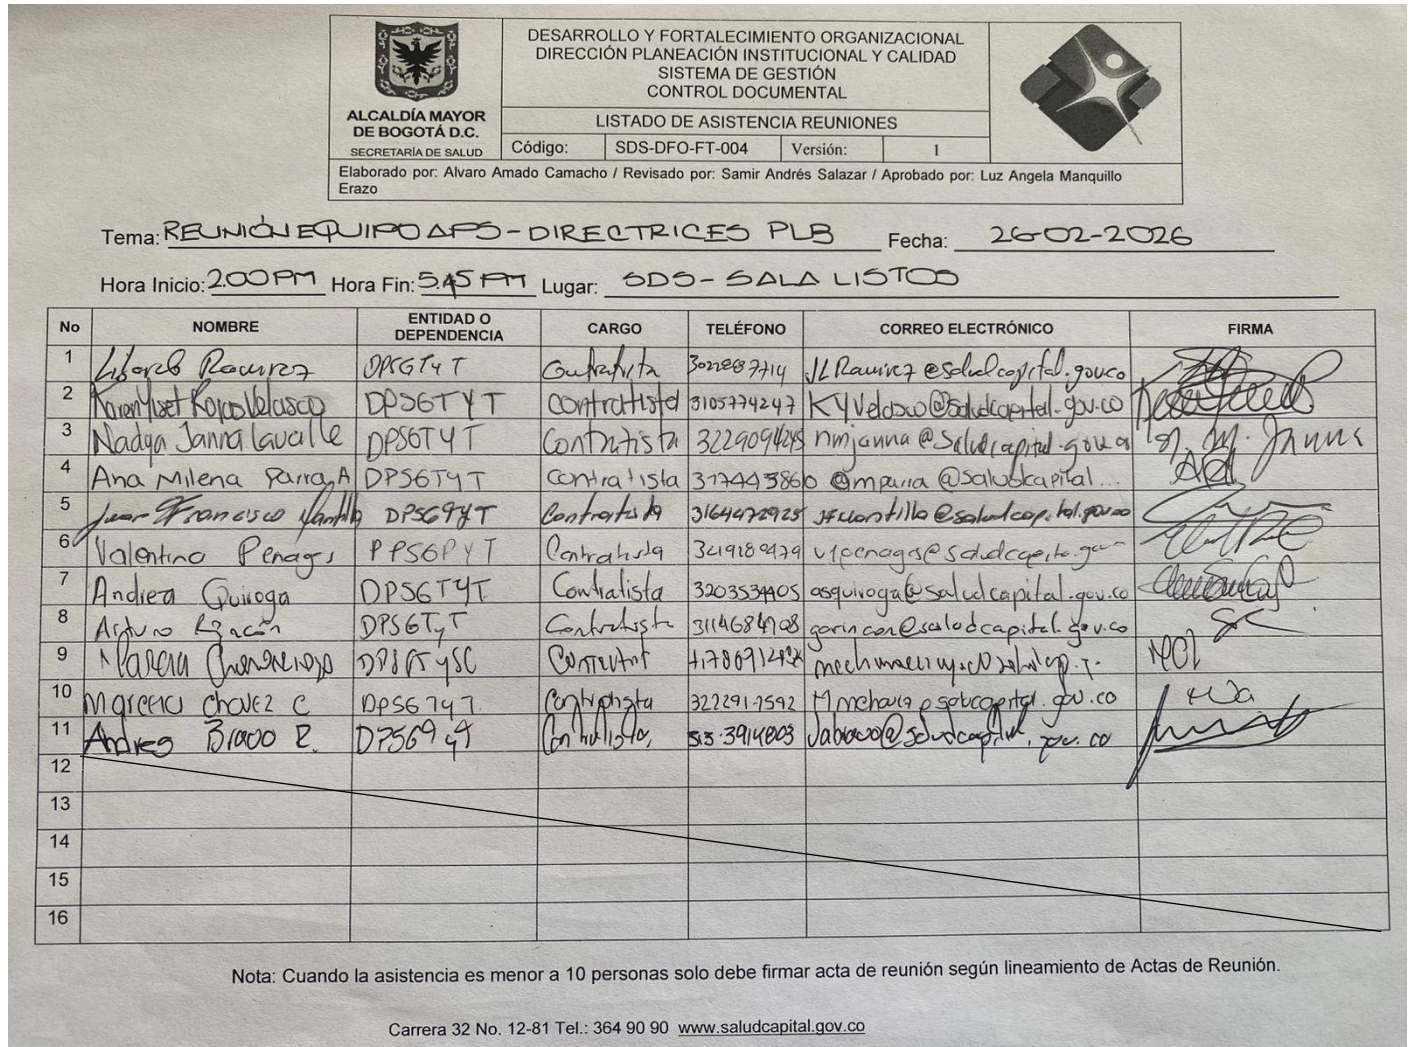 ALCALDÍA MAYOR
DE BOGOTÁ D.C.
SECRETARÍA DE SALUD
DESARROLLO Y FORTALECIMIENTO ORGANIZACIONAL
DIRECCIÓN PLANEACIÓN INSTITUCIONAL Y CALIDAD
SISTEMA DE GESTIÓN
CONTROL DOCUMENTAL
LISTADO DE ASISTENCIA REUNIONES
Código: SDS-DFO-FT-004 Versión: 1
Elaborado por: Alvaro Amado Camacho / Revisado por: Samir Andrés Salazar / Aprobado por: Luz Angela Manquillo
Erazo
Tema: REUNIÓN EQUIPO APS - DIRECTRICES PLB Fecha: 26-02-2026
Hora Inicio: 2:00 PM Hora Fin: 5:45 PM Lugar: SDS - SALA LISTOS
No NOMBRE ENTIDAD O DEPENDENCIA CARGO TELÉFONO CORREO ELECTRÓNICO FIRMA
1 Ramirez DPSGTyT Contratista JLRamirez@saludcapital.gov.co
2 Karen Yiset Rojas Velasco DPSGTYT Contratista 3105774247 KYVelasco@saludcapital.gov.co
3 Nadya Janna Lavalle DPSGTYT Contratista 3229094245 nmjanna@saludcapital.gov.co N. M. Janna
4 Ana Milena Parra A DPSGTYT Contratista @saludcapital...
5 Juan Francisco Mantilla DPSGTYT Contratista 3164472925 jfmantilla@saludcapital.gov.co
6 Valentina Penagos Contratista
7 Andrea Quiroga DPSGTYT Contratista asquiroga@saludcapital.gov.co
8 Arturo Rincón DPSGTyT Contratista 3114684908 garincon@saludcapital.gov.co
9
10 Marcela Chavez C DPSGTyT Contratista
11 Andres Bravo R. DPSGTyT Contratista, 313-3914803 Jabravo@saludcapital.gov.co
12
13
14
15
16
Nota: Cuando la asistencia es menor a 10 personas solo debe firmar acta de reunión según lineamiento de Actas de Reunión.
Carrera 32 No. 12-81 Tel.: 364 90 90 www.saludcapital.gov.co